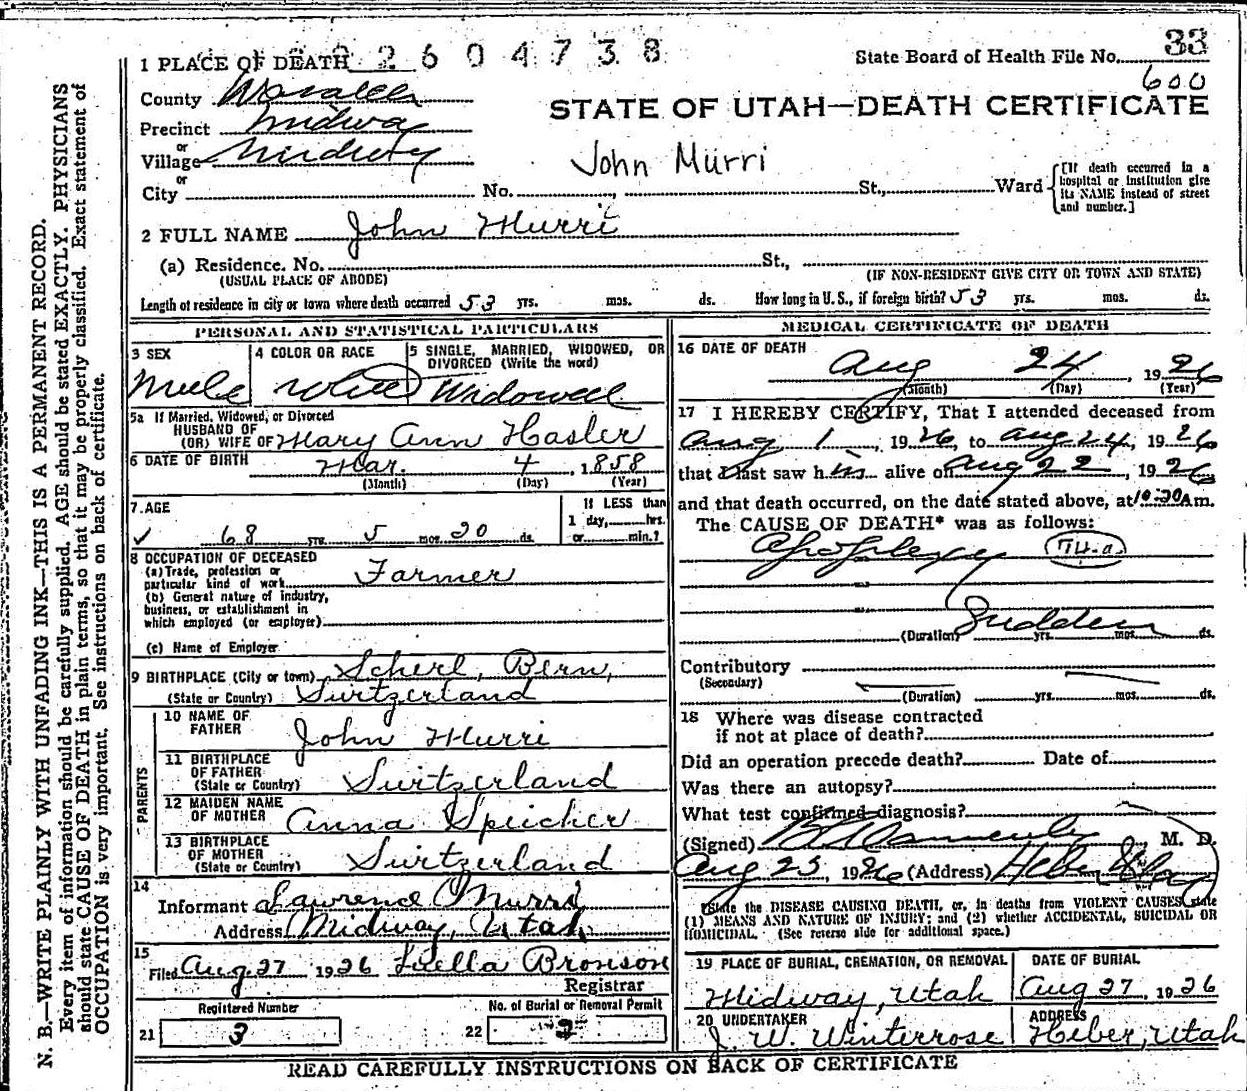 N. B.—WRITE PLAINLY WITH UNFADING INK—THIS IS A PERMANENT RECORD.
Every item of information should be carefully supplied. AGE should be stated EXACTLY. PHYSICIANS
should state CAUSE OF DEATH in plain terms, so that it may be properly classified. Exact statement of
OCCUPATION is very important. See instructions on back of certificate.
1 PLACE OF DEATH 2604738
State Board of Health File No. 33
600
County Wasatch
STATE OF UTAH—DEATH CERTIFICATE
Precinct Midway
or
Village Midway
John Murri
or
City No. St., Ward
[If death occurred in a
hospital or institution give
its NAME instead of street
and number.]
2 FULL NAME John Murri
(a) Residence. No. St.,
(USUAL PLACE OF ABODE) (IF NON-RESIDENT GIVE CITY OR TOWN AND STATE)
Length of residence in city or town where death occurred 53 yrs. mos. ds. How long in U. S., if foreign birth? 53 yrs. mos. ds.
PERSONAL AND STATISTICAL PARTICULARS
3 SEX 4 COLOR OR RACE 5 SINGLE, MARRIED, WIDOWED, OR
DIVORCED (Write the word)
Male White Widowed
5a If Married, Widowed, or Divorced
HUSBAND OF
(OR) WIFE OF Mary Ann Hasler
6 DATE OF BIRTH Mar. 4, 1858
(Month) (Day) (Year)
7. AGE If LESS than
1 day, hrs.
✓ 68 yrs. 5 mos. 20 ds. or min.?
8 OCCUPATION OF DECEASED
(a) Trade, profession or
particular kind of work Farmer
(b) General nature of industry,
business, or establishment in
which employed (or employer)
(c) Name of Employer
9 BIRTHPLACE (City or town) Scherl, Bern,
(State or Country) Switzerland
PARENTS
10 NAME OF
FATHER John Murri
11 BIRTHPLACE
OF FATHER
(State or Country) Switzerland
12 MAIDEN NAME
OF MOTHER Anna Speicher
13 BIRTHPLACE
OF MOTHER
(State or Country) Switzerland
14
Informant Lawrence Murri
Address Midway, Utah
15
Filed Aug 27 1926 Luella Bronson
Registrar
Registered Number No. of Burial or Removal Permit
21 3 22 2
MEDICAL CERTIFICATE OF DEATH
16 DATE OF DEATH
Aug 24, 1926
(Month) (Day) (Year)
17 I HEREBY CERTIFY, That I attended deceased from
Aug 1, 1926, to Aug 24, 1926
that I last saw him alive on Aug 22, 1926
and that death occurred, on the date stated above, at 10-30 Am.
The CAUSE OF DEATH* was as follows:
Apoplexy 74-a
Sudden
(Duration) yrs. mos. ds.
Contributory
(Secondary)
(Duration) yrs. mos. ds.
18 Where was disease contracted
if not at place of death?
Did an operation precede death? Date of
Was there an autopsy?
What test confirmed diagnosis?
(Signed) M. D.
Aug 25, 1926 (Address) Heber Utah
*State the DISEASE CAUSING DEATH, or, in deaths from VIOLENT CAUSES state
(1) MEANS AND NATURE OF INJURY; and (2) whether ACCIDENTAL, SUICIDAL OR
HOMICIDAL. (See reverse side for additional space.)
19 PLACE OF BURIAL, CREMATION, OR REMOVAL DATE OF BURIAL
Midway, Utah Aug 27, 1926
20 UNDERTAKER ADDRESS
J. W. Winterrose Heber, Utah
READ CAREFULLY INSTRUCTIONS ON BACK OF CERTIFICATE